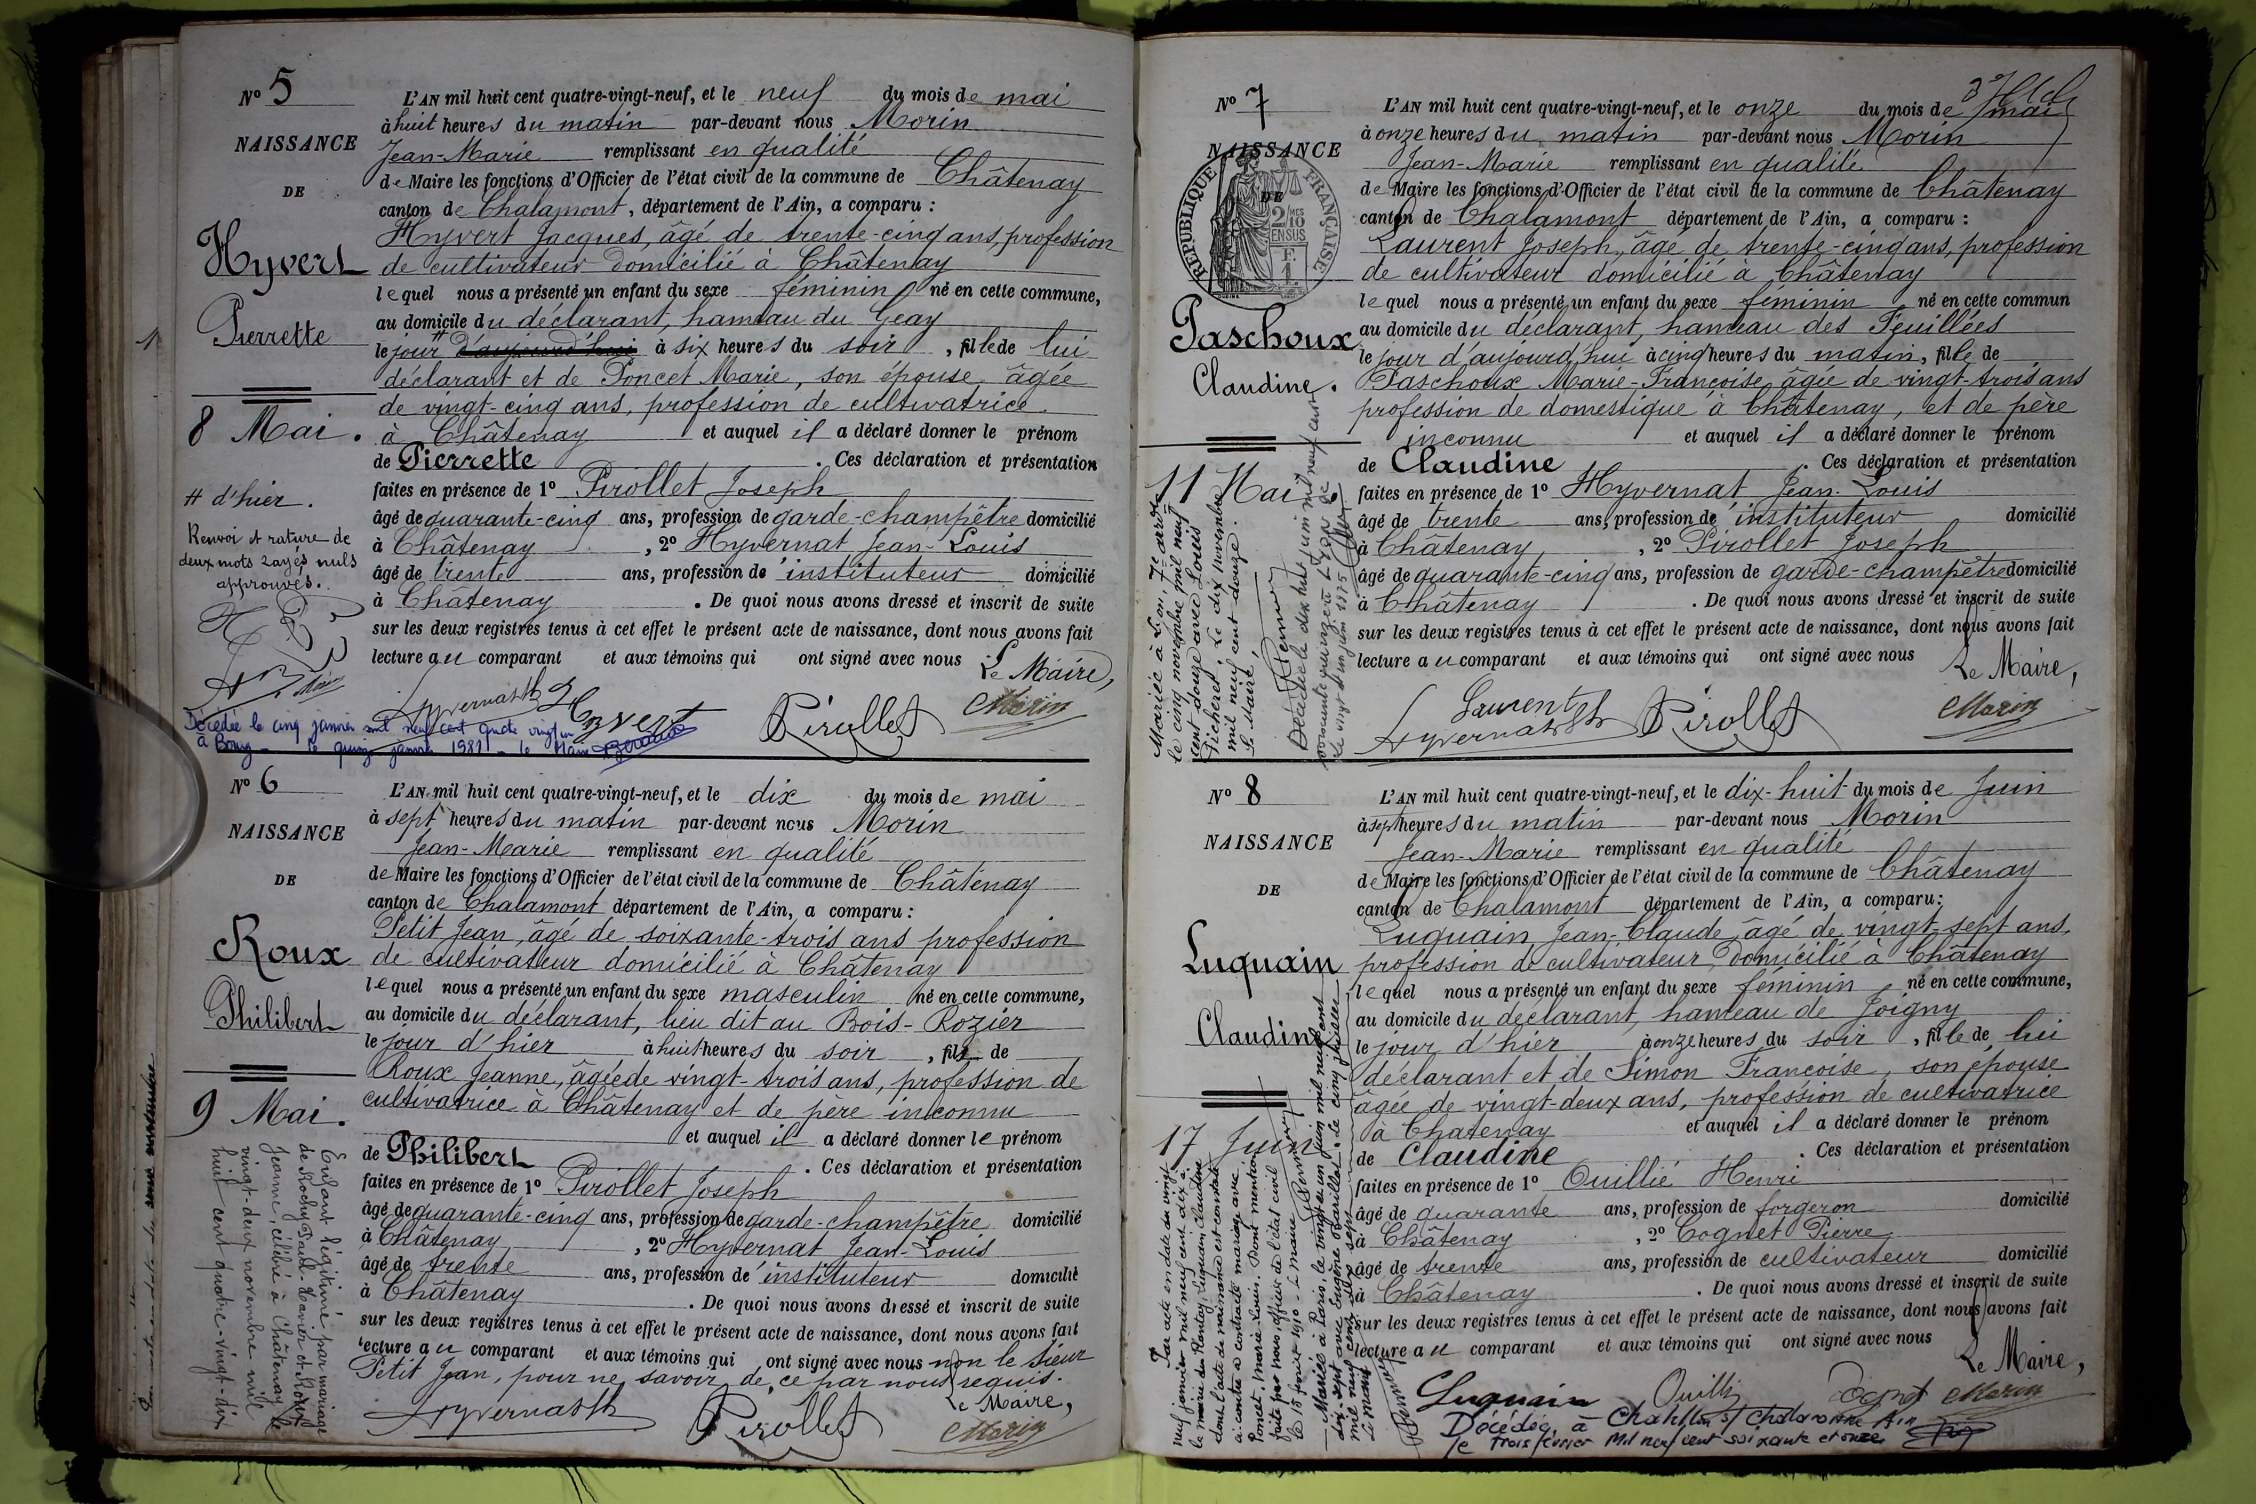 N° 5
NAISSANCE
DE
Hyvert
Pierrette
8 Mai.
# d'hier.
Renvoi et rature de
deux mots rayés nuls
approuvés.
L'AN mil huit cent quatre-vingt-neuf, et le neuf du mois de mai
à huit heures du matin par-devant nous Morin
Jean-Marie remplissant en qualité
de Maire les fonctions d'Officier de l'état civil de la commune de Châtenay
canton de Chalamont, département de l'Ain, a comparu :
Hyvert Jacques, âgé de trente-cinq ans, profession
de cultivateur domicilié à Châtenay
lequel nous a présenté un enfant du sexe féminin né en cette commune,
au domicile du déclarant, hameau du Geay
le jour # d'aujourd'hui à six heures du soir, fille de lui
déclarant et de Poncet Marie, son épouse, âgée
de vingt-cinq ans, profession de cultivatrice
à Châtenay et auquel il a déclaré donner le prénom
de Pierrette. Ces déclaration et présentation
faites en présence de 1° Pirollet Joseph
âgé de quarante-cinq ans, profession de garde-champêtre domicilié
à Châtenay, 2° Hyvernat Jean-Louis
âgé de trente ans, profession de instituteur domicilié
à Châtenay. De quoi nous avons dressé et inscrit de suite
sur les deux registres tenus à cet effet le présent acte de naissance, dont nous avons fait
lecture au comparant et aux témoins qui ont signé avec nous
Le Maire,
Hyvernat Hyvert Pirollet Morin
Décédée le cinq janvier mil neuf cent quatre vingt un
à Bourg - le quinze janvier 1981 - le Maire
N° 6
NAISSANCE
DE
Roux
Philibert
9 Mai.
Enfant légitimé par mariage
de Rochy Paul-Xavier et Roux
Jeanne, célébré à Châtenay le
vingt-deux novembre mil
huit cent quatre-vingt-dix
L'AN mil huit cent quatre-vingt-neuf, et le dix du mois de mai
à sept heures du matin par-devant nous Morin
Jean-Marie remplissant en qualité
de Maire les fonctions d'Officier de l'état civil de la commune de Châtenay
canton de Chalamont département de l'Ain, a comparu :
Petit Jean, âgé de soixante-trois ans profession
de cultivateur domicilié à Châtenay
lequel nous a présenté un enfant du sexe masculin né en cette commune,
au domicile du déclarant, lieu dit au Bois-Rozier
le jour d'hier à huit heures du soir, fils de
Roux Jeanne, âgée de vingt-trois ans, profession de
cultivatrice à Châtenay et de père inconnu
et auquel il a déclaré donner le prénom
de Philibert. Ces déclaration et présentation
faites en présence de 1° Pirollet Joseph
âgé de quarante-cinq ans, profession de garde-champêtre domicilié
à Châtenay, 2° Hyvernat Jean-Louis
âgé de trente ans, profession de instituteur domicilié
à Châtenay. De quoi nous avons dressé et inscrit de suite
sur les deux registres tenus à cet effet le présent acte de naissance, dont nous avons fait
lecture au comparant et aux témoins qui ont signé avec nous non le sieur
Petit Jean, pour ne savoir de ce par nous requis.
Le Maire,
Hyvernat Pirollet Morin
N° 7
NAISSANCE
DE
RÉPUBLIQUE FRANÇAISE
2/10 EN SUS
Paschoux
Claudine.
11 Mai.
Mariée à Lyon, 7e arrt
le cinq novembre mil neuf
cent douze avec Louis
Picherel. Le dix novembre
mil neuf cent douze.
Le Maire,
L'AN mil huit cent quatre-vingt-neuf, et le onze du mois de mai
à onze heures du matin par-devant nous Morin
Jean-Marie remplissant en qualité
de Maire les fonctions d'Officier de l'état civil de la commune de Châtenay
canton de Chalamont département de l'Ain, a comparu :
Laurent Joseph, âgé de trente-cinq ans, profession
de cultivateur domicilié à Châtenay
lequel nous a présenté un enfant du sexe féminin né en cette commun
au domicile du déclarant, hameau des Feuillées
le jour d'aujourd'hui à cinq heures du matin, fille de
Paschoux Marie-Françoise âgée de vingt-trois ans
profession de domestique à Châtenay, et de père
inconnu et auquel il a déclaré donner le prénom
de Claudine. Ces déclaration et présentation
faites en présence de 1° Hyvernat Jean-Louis
âgé de trente ans, profession de instituteur domicilié
à Châtenay, 2° Pirollet Joseph
âgé de quarante-cinq ans, profession de garde-champêtre domicilié
à Châtenay. De quoi nous avons dressé et inscrit de suite
sur les deux registres tenus à cet effet le présent acte de naissance, dont nous avons fait
lecture au comparant et aux témoins qui ont signé avec nous
Le Maire,
Laurent
Hyvernat Pirollet Morin
N° 8
NAISSANCE
DE
Luquain
Claudine
17 Juin
L'AN mil huit cent quatre-vingt-neuf, et le dix-huit du mois de Juin
à sept heures du matin par-devant nous Morin
Jean-Marie remplissant en qualité
de Maire les fonctions d'Officier de l'état civil de la commune de Châtenay
canton de Chalamont département de l'Ain, a comparu :
Luquain Jean-Claude, âgé de vingt-sept ans,
profession de cultivateur, domicilié à Châtenay
lequel nous a présenté un enfant du sexe féminin né en cette commune,
au domicile du déclarant, hameau de Joigny
le jour d'hier à onze heures du soir, fille de lui
déclarant et de Simon Françoise, son épouse
âgée de vingt-deux ans, profession de cultivatrice
à Châtenay et auquel il a déclaré donner le prénom
de Claudine. Ces déclaration et présentation
faites en présence de 1° Ouillié Henri
âgé de quarante ans, profession de forgeron domicilié
à Châtenay, 2° Cognet Pierre
âgé de trente ans, profession de cultivateur domicilié
à Châtenay. De quoi nous avons dressé et inscrit de suite
sur les deux registres tenus à cet effet le présent acte de naissance, dont nous avons fait
lecture au comparant et aux témoins qui ont signé avec nous
Le Maire,
Luquain Cognet Morin
Décédée à Chatillon s/ Chalaronne Ain
le trois février mil neuf cent soixante et onze